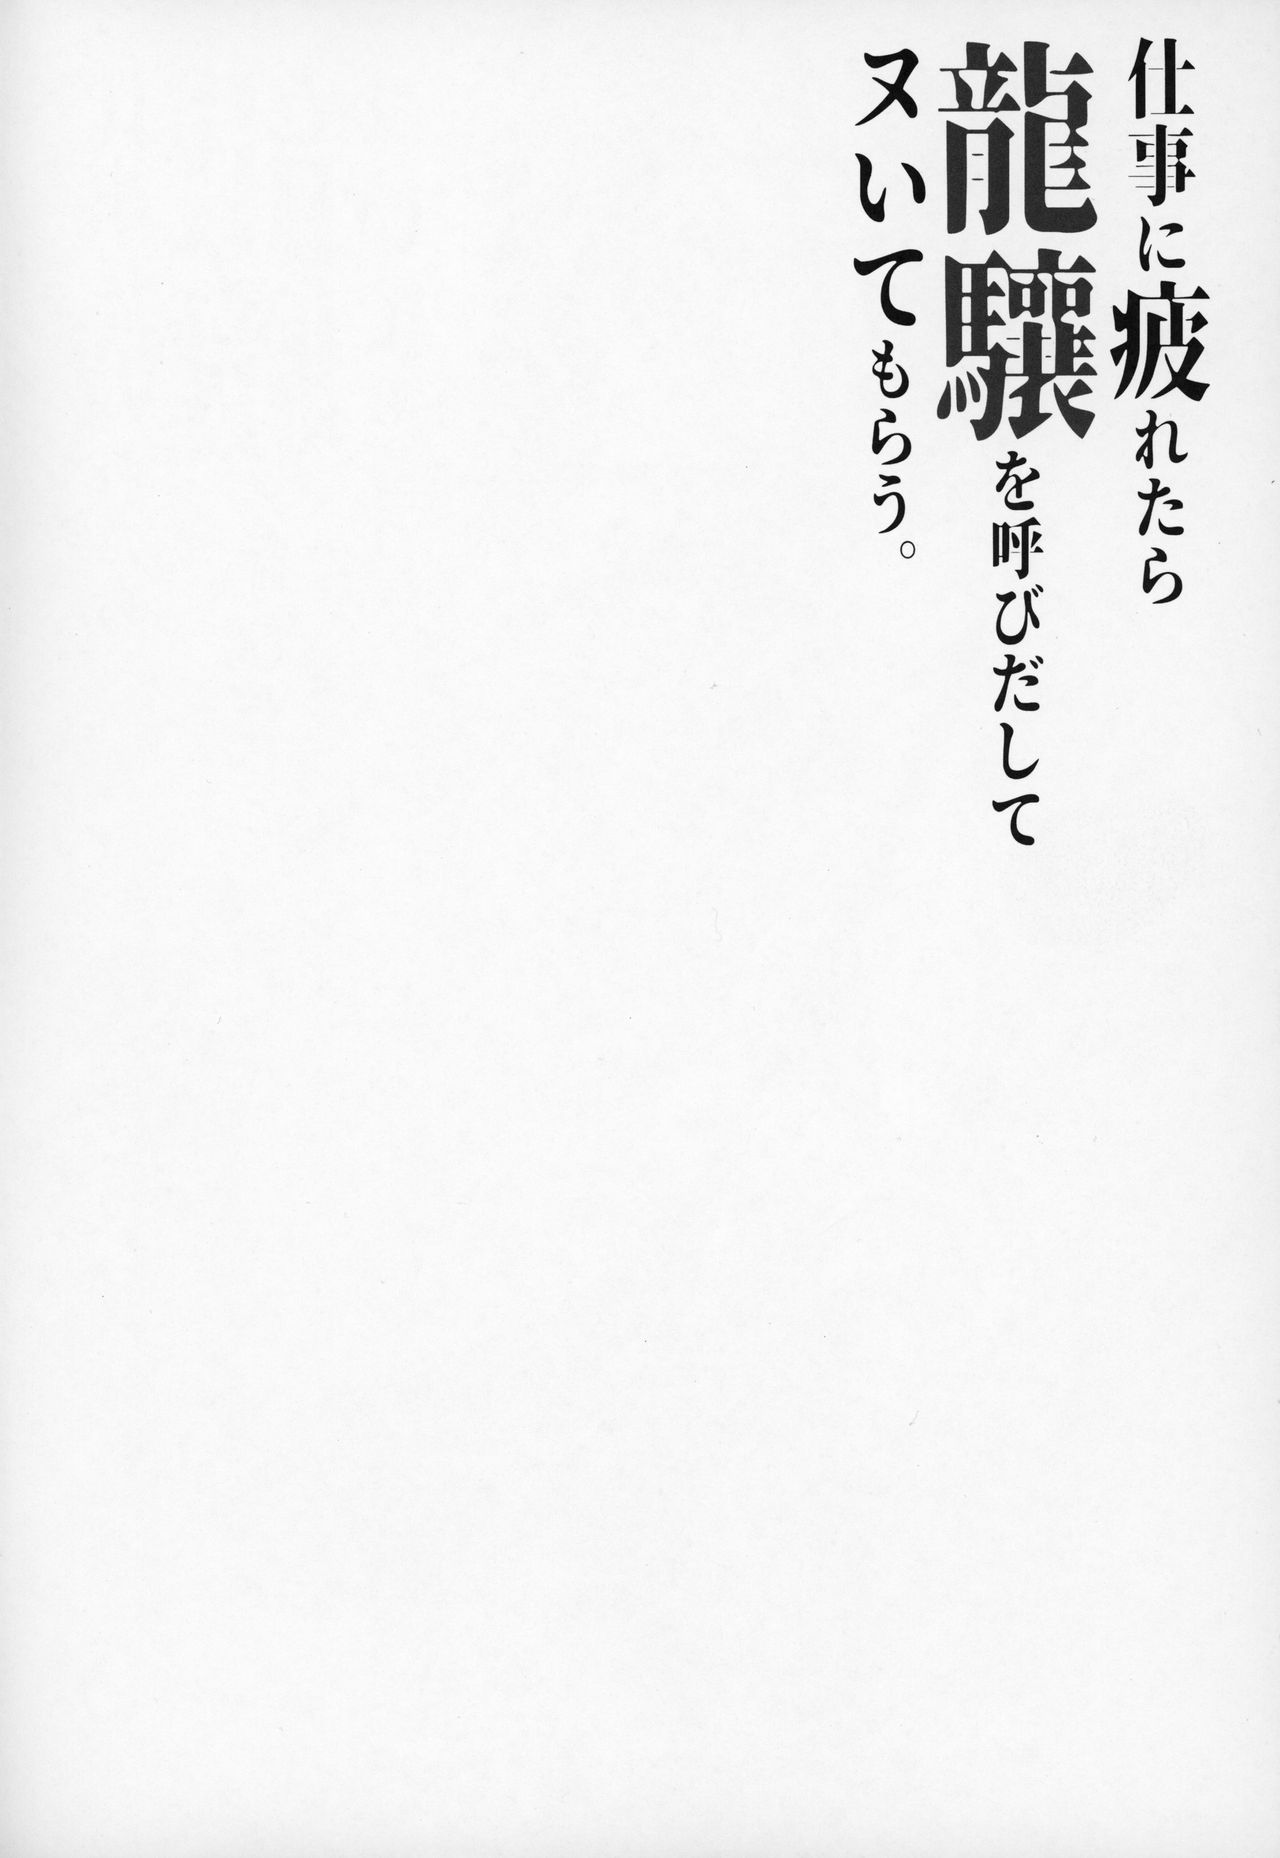 仕事に疲れたら
龍驤を呼びだして
ヌいてもらう。